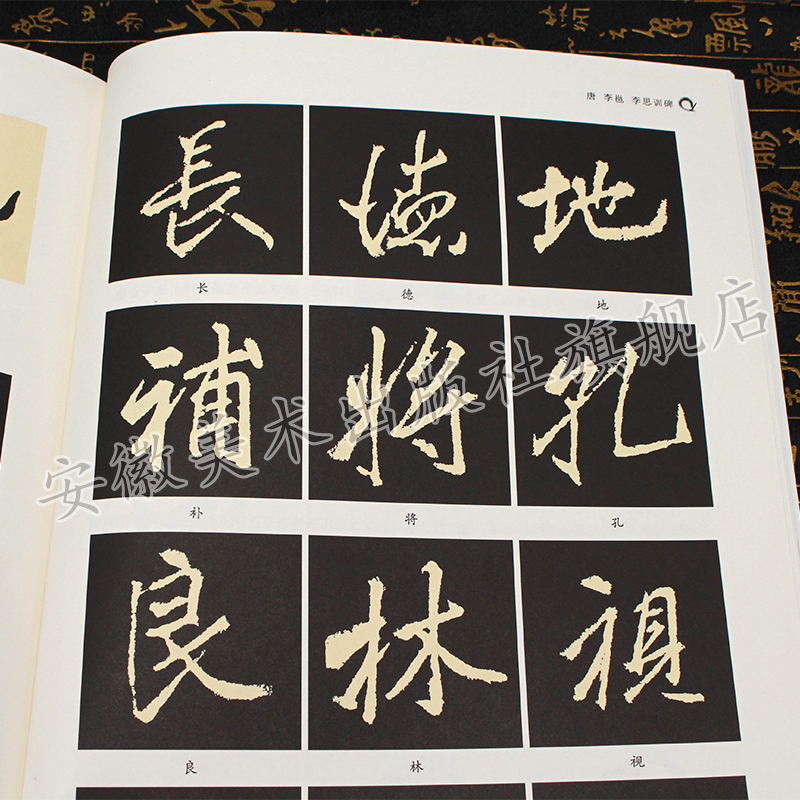 唐 李邕 李思训碑
長 德 地
长 德 地
補 將 孔
补 将 孔
良 林 視
良 林 视
安徽美术出版社旗舰店